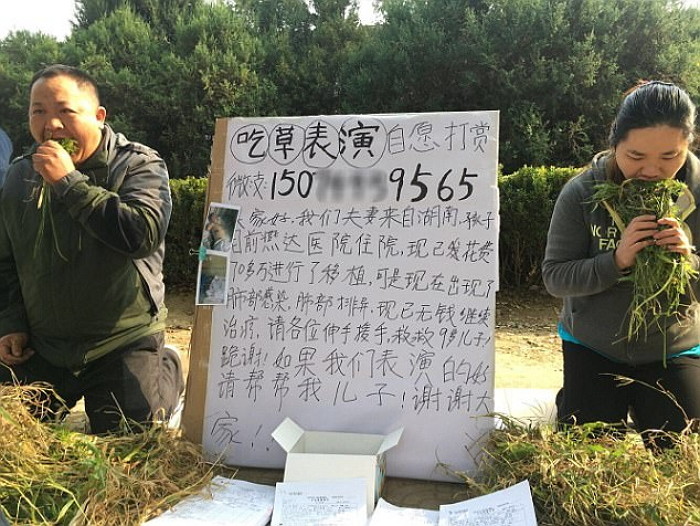 吃草表演 自愿打赏
微信:150 9565
大家好,我们夫妻来自湖南,孩子
目前燕达医院住院,现已花费
70多万进行了移植,可是现在出现了
肺部感染,肺部排异,现已无钱继续
治疗,请各位伸手援手,救救9岁儿子!
跪谢!如果我们表演的好
请帮帮我儿子!谢谢大
家!!
FACE